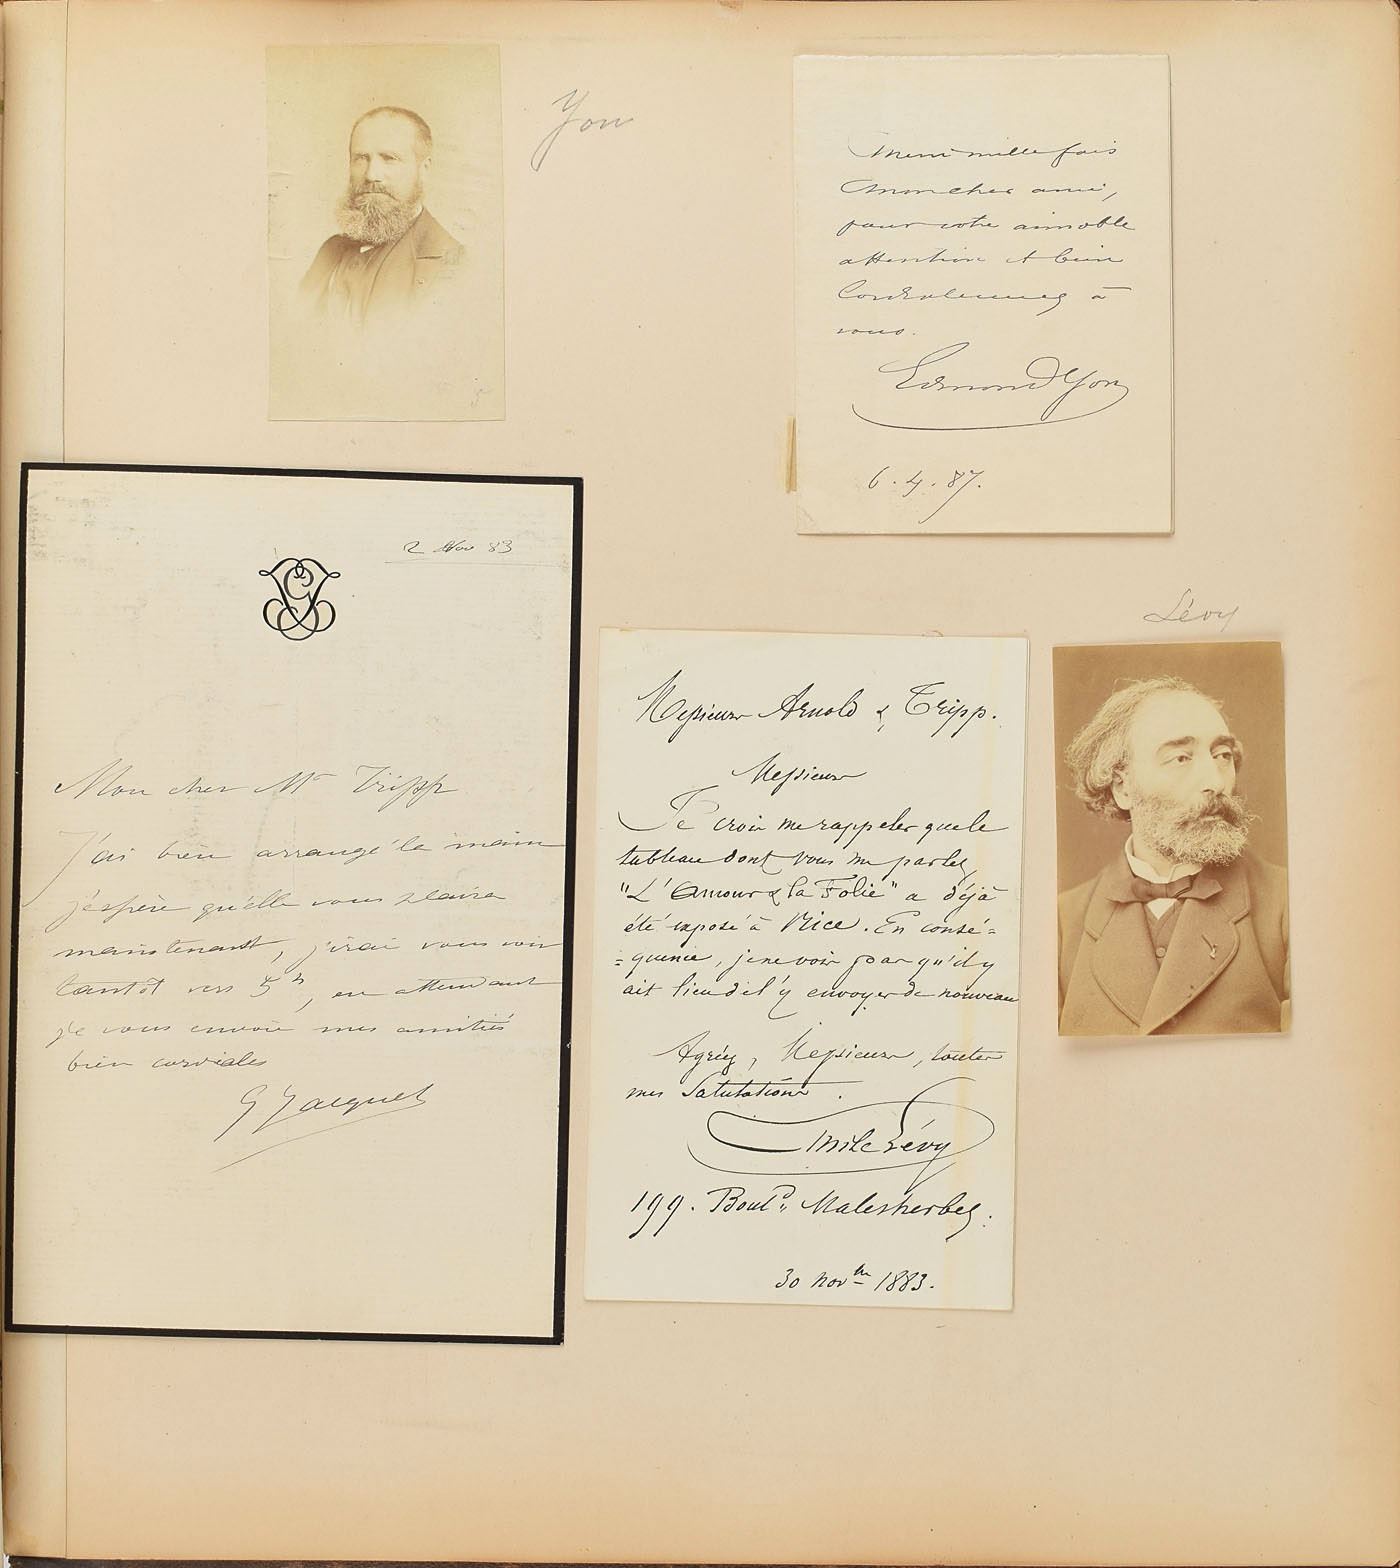 Yon
Merci mille fois
mon cher ami,
pour votre aimable
attention et bien
Cordialement à
vous.
Edmond Yon
6.4.87.
2 Nov 83
Mon cher Mr Tripp
J'ai bien arrangé la main
j'espère qu'elle vous plaira
maintenant, j'irai vous voir
tantôt vers 5h, en attendant
je vous envoie mes amitiés
bien cordiales
G Jacquet
Messieurs Arnold & Tripp.
Messieurs
Je crois me rappeler que le
tableau dont vous me parlez
"L'Amour & la Folie" a déjà
été exposé à Nice. En consé=
=quence, je ne vois pas qu'il y
ait lieu de l'y envoyer de nouveau
Agréez, Messieurs, toutes
mes Salutations.
Emile Lévy
199. Boulд. Malesherbes.
30 novbre 1883.
Lévy